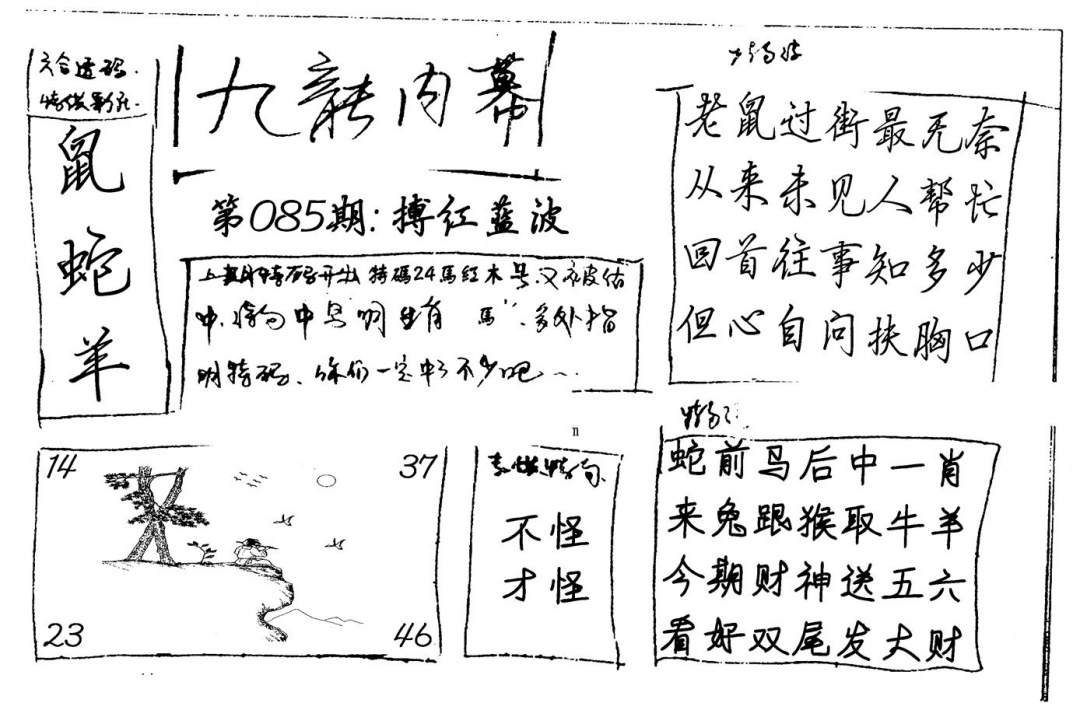 六合透码
鼠
蛇
羊
九龍内幕
第085期:搏红蓝波
上期特码开出特碼24馬红木号又被估
中、特句中鸟明生肖馬、多处指
明特码、你们一定中了不少吧
老鼠过街最无奈
从来未见人帮忙
回首往事知多少
但心自问扶胸口
14
37
23
46
n
不怪
才怪
蛇前马后中一肖
来兔跟猴取牛羊
今期财神送五六
看好双尾发大财